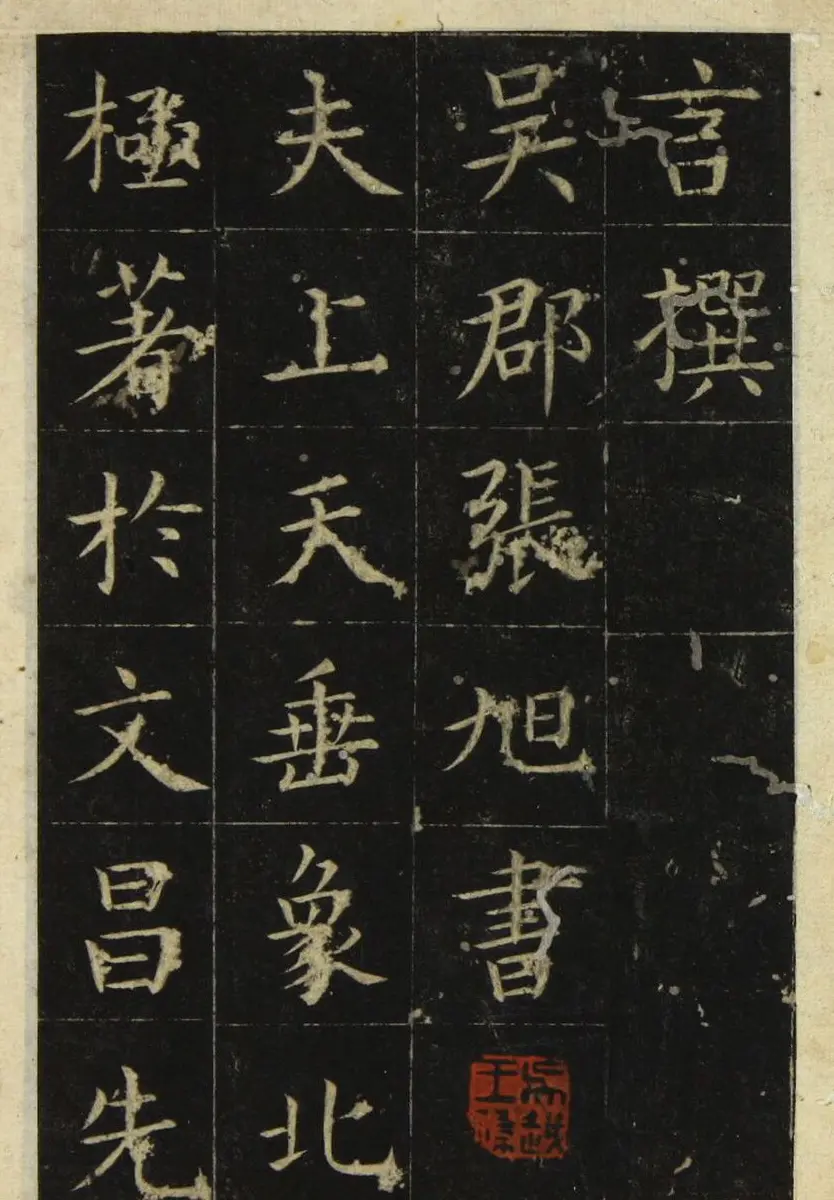 言撰
吳郡張旭書
夫上天垂象北
極著於文昌先